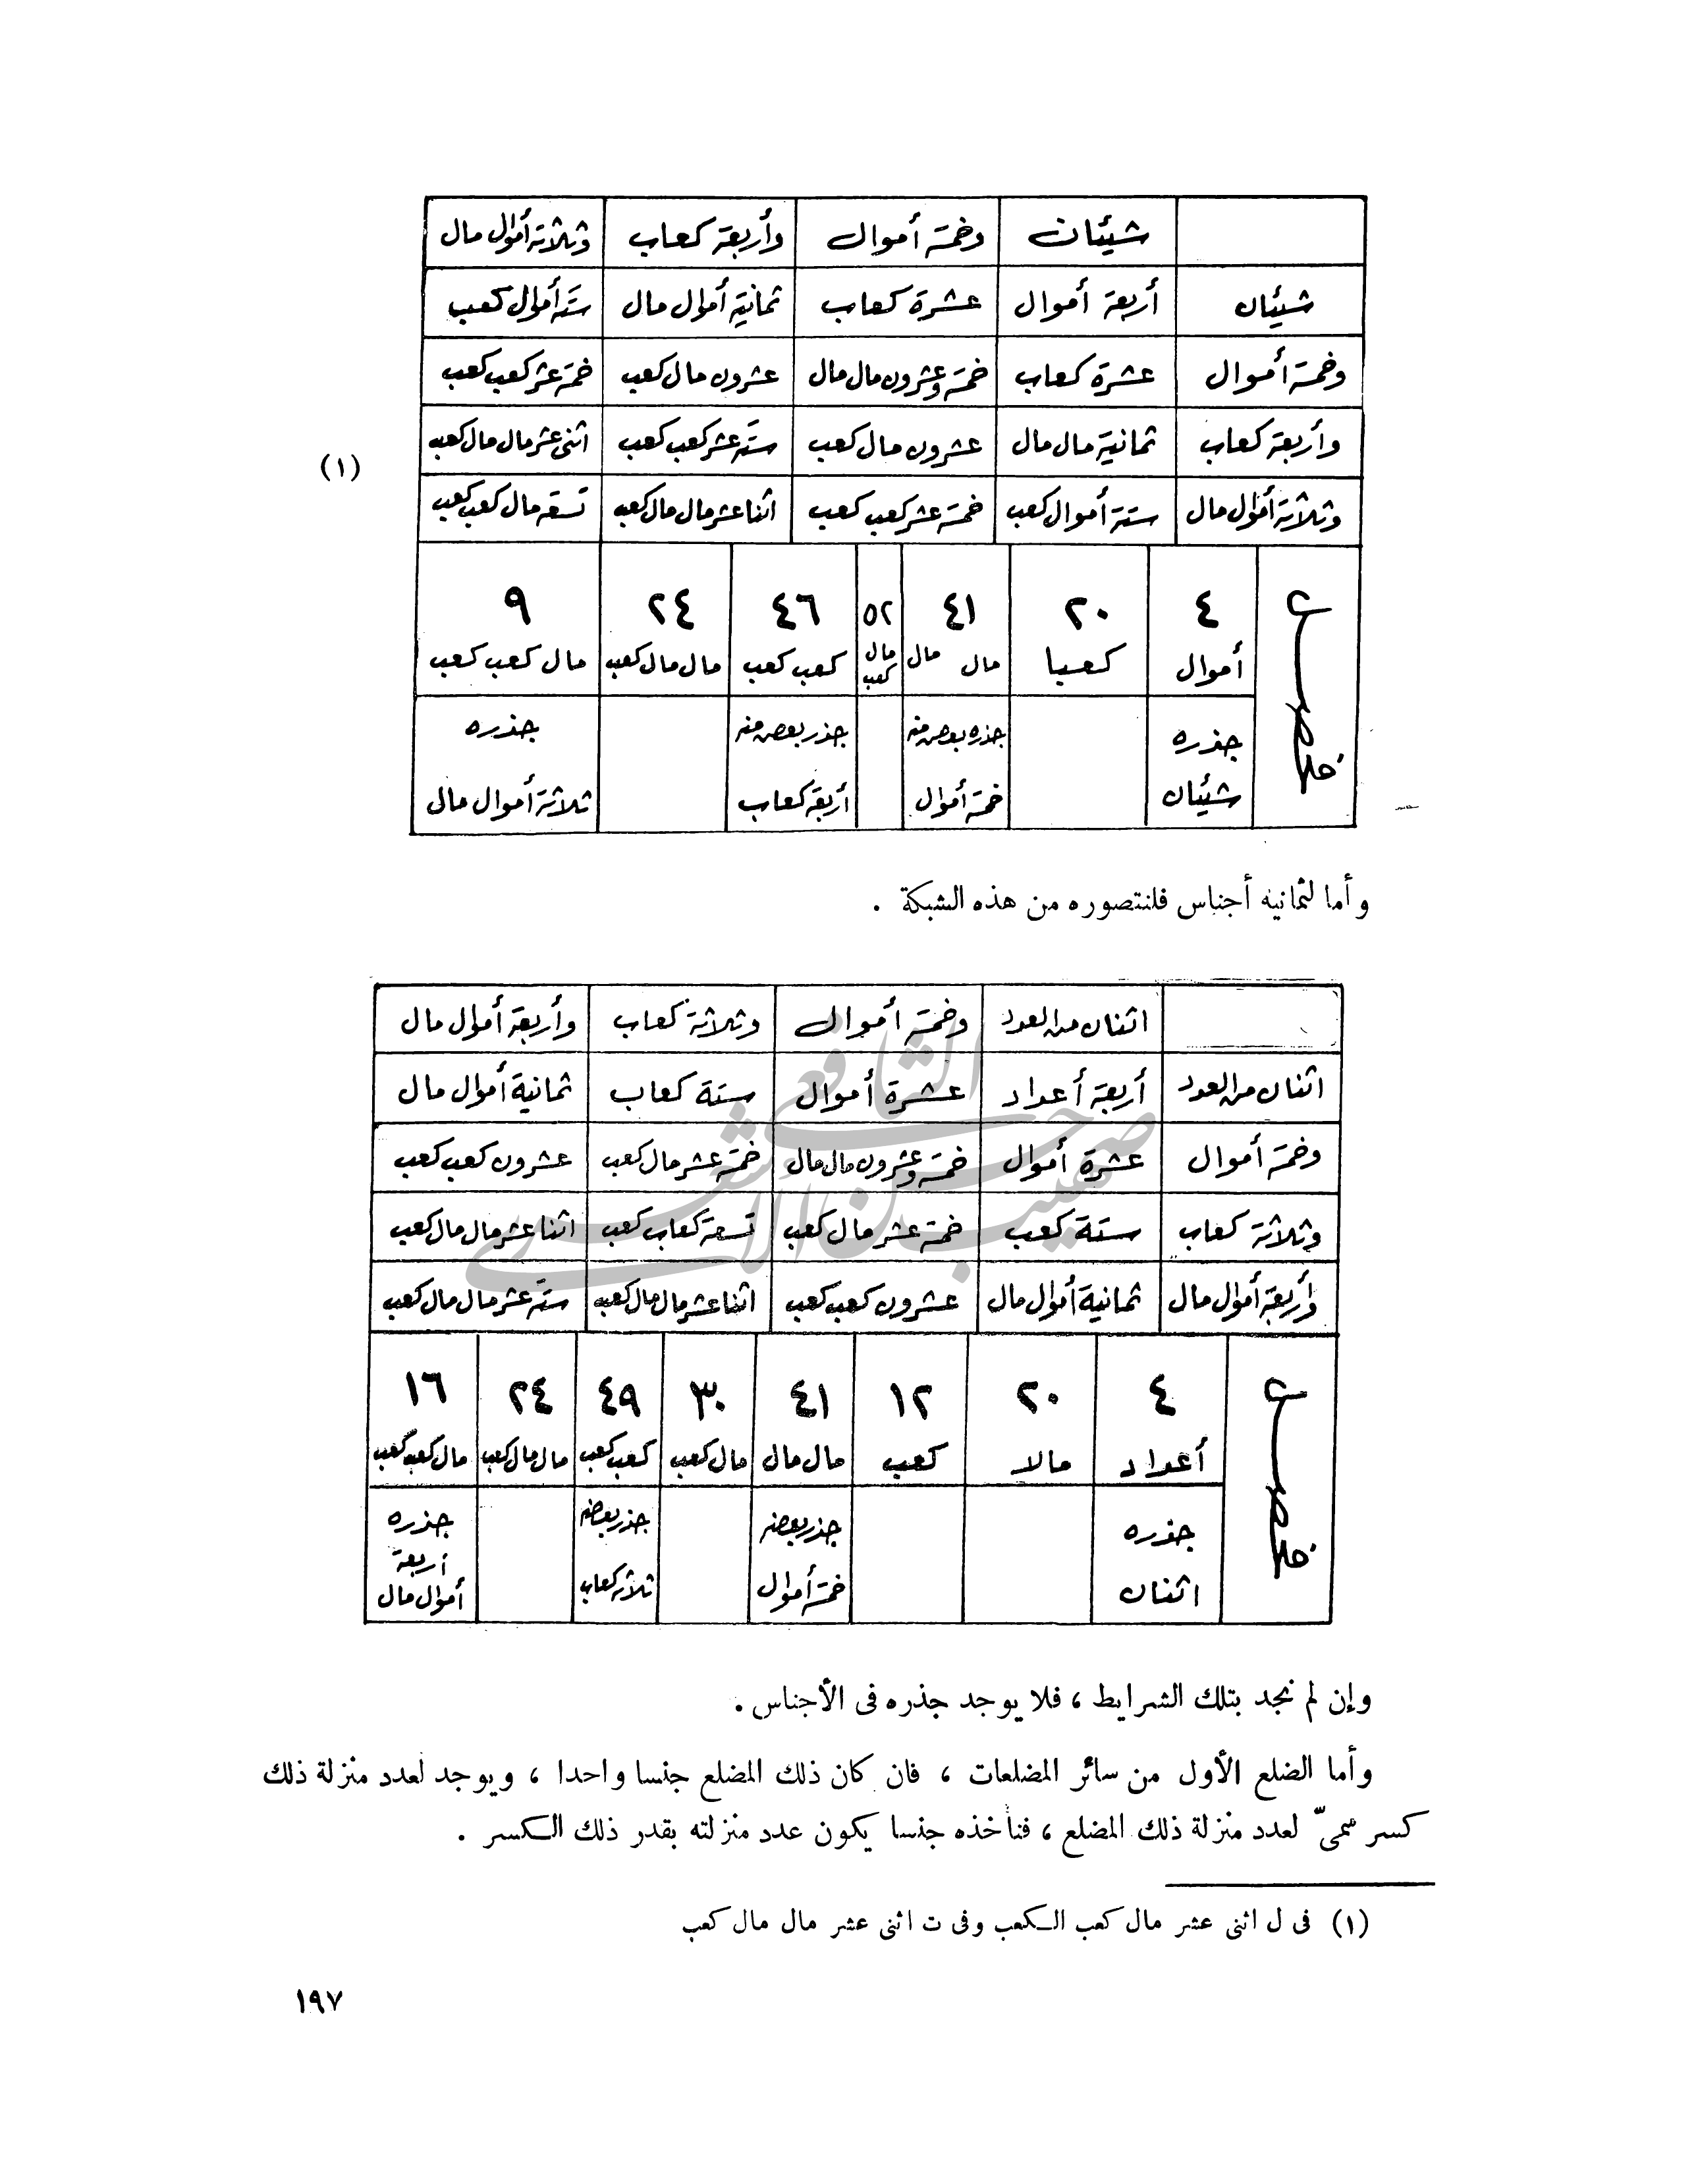 شيئان وخمسة أموال وأربعة كعاب وثلاثة أموال مال
شيئان أربعة أموال عشرة كعاب ثمانية أموال مال ستة أموال كعب
وخمسة أموال عشرة كعاب خمسة وعشرون مال مال عشرون مال كعب خمسة عشر كعب كعب
وأربعة كعاب ثمانية مال مال عشرون مال كعب ستة عشر كعب كعب اثنى عشر مال مال كعب
(١)
وثلاثة أموال مال ستة أموال كعب خمسة عشر كعب كعب اثنا عشر مال مال كعب تسعة مال كعب كعب
٤ ٢٠ ٤١ ٥٢ ٤٦ ٢٤ ٩
أموال كعبا مال مال مال كعب كعب كعب مال مال كعب مال كعب كعب
جذره جذره بعض منه جذر بعض منه جذره
شيئان خمسة أموال أربعة كعاب ثلاثة أموال مال
وأما لثمانيه أجناس فلنتصوره من هذه الشبكة .
اثنان من العدد وخمسة أموال وثلاثة كعاب وأربعة أموال مال
اثنان من العدد أربعة أعداد عشرة أموال ستة كعاب ثمانية أموال مال
وخمسة أموال عشرة أموال خمسة وعشرون مال مال خمسة عشر مال كعب عشرون كعب كعب
وثلاثة كعاب ستة كعب خمسة عشر مال كعب تسعة كعاب كعب اثنا عشر مال مال كعب
وأربعة أموال مال ثمانية أموال مال عشرون كعب كعب اثنا عشر مال مال كعب ستة عشر مال مال كعب
٤ ٢٠ ١٢ ٤١ ٣٠ ٤٩ ٢٤ ١٦
أعداد مالا كعب مال مال مال كعب كعب كعب مال مال كعب مال كعب كعب
جذره جذر بعضه جذر بعضه جذره
اثنان خمسة أموال ثلاثة كعاب أربعة أموال مال
وإن لم نجد بتلك الشرايط ، فلا يوجد جذره فى الأجناس .
وأما الضلع الأول من سائر المضلعات ، فان كان ذلك المضلع جنسا واحدا ، ويوجد لعدد منزلة ذلك
كسر سمىّ لعدد منزلة ذلك المضلع ، فنأخذه جنسا يكون عدد منزلته بقدر ذلك الكسر .
(١) فى ل اثنى عشر مال كعب الكعب وفى ت اثنى عشر مال مال كعب
١٩٧